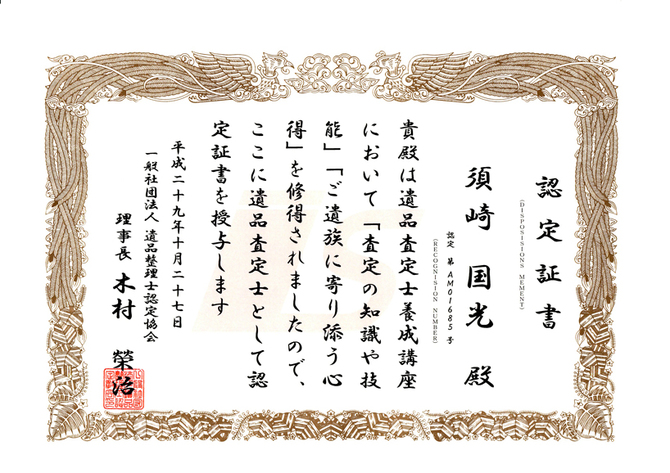 認定証書
(DISPOSISIONS MEMENT)
須崎 国光 殿
認定 第 AM01685 号
(RECOGNISION NUMBER)
貴殿は遺品査定士養成講座
において「査定の知識や技
能」「ご遺族に寄り添う心
得」を修得されましたので、
ここに遺品査定士として認
定証書を授与します
平成二十九年十月二十七日
一般社団法人 遺品整理士認定協会
理事長 木村 榮治